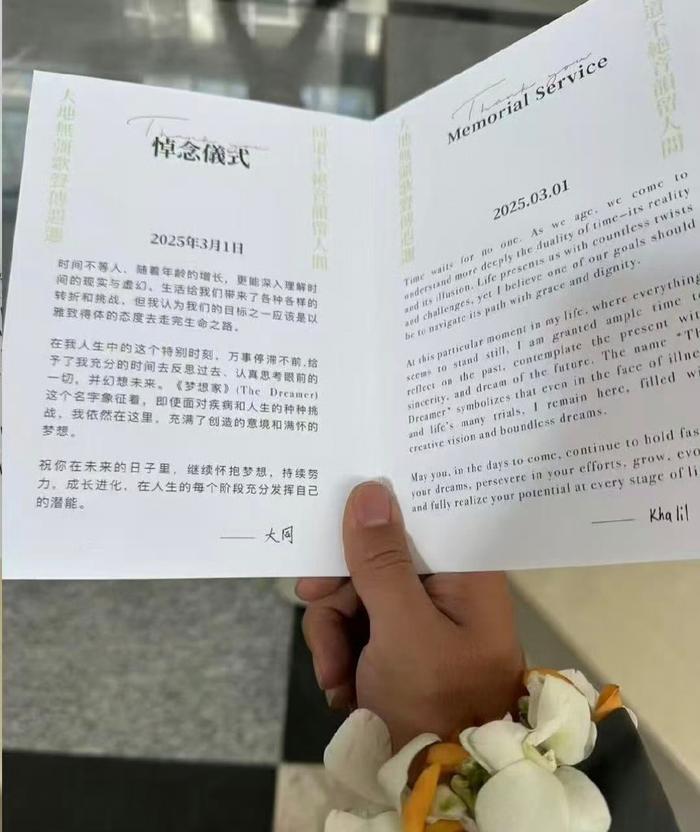 大地無歌聲傳
Thank you
悼念儀式
同道不絕音韻留人間
2025年3月1日
时间不等人，随着年龄的增长，更能深入理解时
间的现实与虚幻。生活给我们带来了各种各样的
转折和挑战，但我认为我们的目标之一应该是以
雅致得体的态度去走完生命之路。
在我人生中的这个特别时刻，万事停滞不前,给
予了我充分的时间去反思过去、认真思考眼前的
一切，并幻想未来。《梦想家》(The Dreamer)
这个名字象征着，即使面对疾病和人生的种种挑
战，我依然在这里，充满了创造的意境和满怀的
梦想。
祝你在未来的日子里，继续怀抱梦想，持续努
力，成长进化，在人生的每个阶段充分发挥自己
的潜能。
—— 大同
大地無歌聲傳
Thank you
Memorial Service
道不絕音韻留人間
2025.03.01
Time waits for no one. As we age, we come to
understand more deeply the duality of time—its reality
and its illusion. Life presents us with countless twists
and challenges, yet I believe one of our goals should
be to navigate its path with grace and dignity.
At this particular moment in my life, where everything
seems to stand still, I am granted ample time to
reflect on the past, contemplate the present wit
sincerity, and dream of the future. The name "Th
Dreamer" symbolizes that even in the face of illn
and life's many trials, I remain here, filled wi
creative vision and boundless dreams.
May you, in the days to come, continue to hold fas
your dreams, persevere in your efforts, grow, evo
and fully realize your potential at every stage of li
—— Khalil